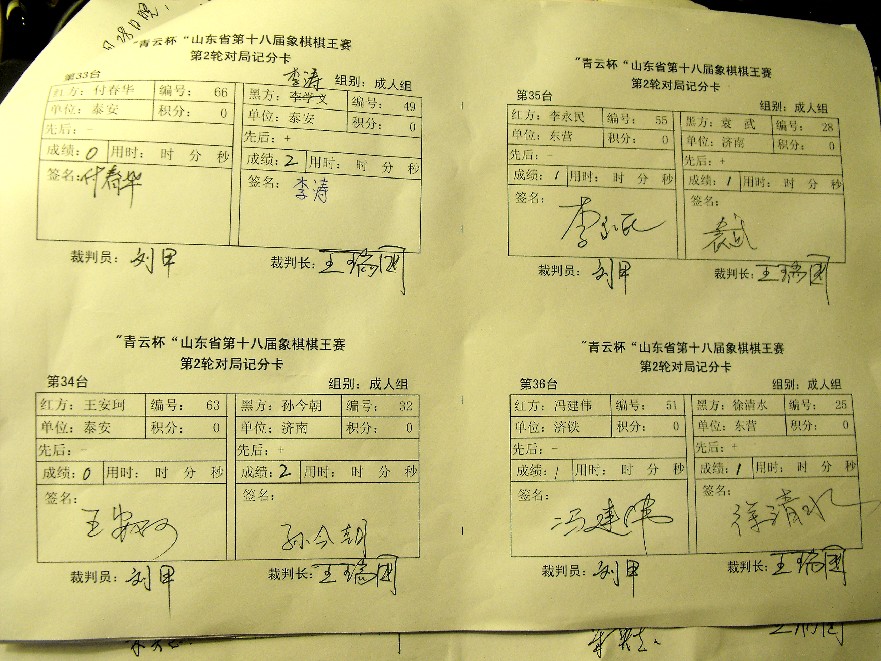 "青云杯"山东省第十八届象棋棋王赛
第2轮对局记分卡
第33台 组别：成人组
李涛
红方：付春华 编号：66 黑方：李学文 编号：49
单位：泰安 积分：0 单位：泰安 积分：0
先后：- 先后：+
成绩：0 用时： 时 分 秒 成绩：2 用时： 时 分 秒
签名：付春华 签名：李涛
裁判员：刘甲 裁判长：王瑞国
"青云杯"山东省第十八届象棋棋王赛
第2轮对局记分卡
第35台 组别：成人组
红方：李永民 编号：55 黑方：袁 武 编号：28
单位：东营 积分：0 单位：济南 积分：0
先后：- 先后：+
成绩：1 用时： 时 分 秒 成绩：1 用时： 时 分 秒
签名： 签名：
李永民 袁武
裁判员：刘甲 裁判长：王瑞国
"青云杯"山东省第十八届象棋棋王赛
第2轮对局记分卡
第34台 组别：成人组
红方：王安珂 编号：63 黑方：孙今朝 编号：32
单位：泰安 积分：0 单位：济南 积分：0
先后：- 先后：+
成绩：0 用时： 时 分 秒 成绩：2 用时： 时 分 秒
签名： 签名：
王安珂 孙今朝
裁判员：刘甲 裁判长：王瑞国
"青云杯"山东省第十八届象棋棋王赛
第2轮对局记分卡
第36台 组别：成人组
红方：冯建伟 编号：51 黑方：徐清水 编号：25
单位：济铁 积分：0 单位：东营 积分：0
先后：- 先后：+
成绩：1 用时： 时 分 秒 成绩：1 用时： 时 分 秒
签名： 签名：
冯建伟 徐清水
裁判员：刘甲 裁判长：王瑞国